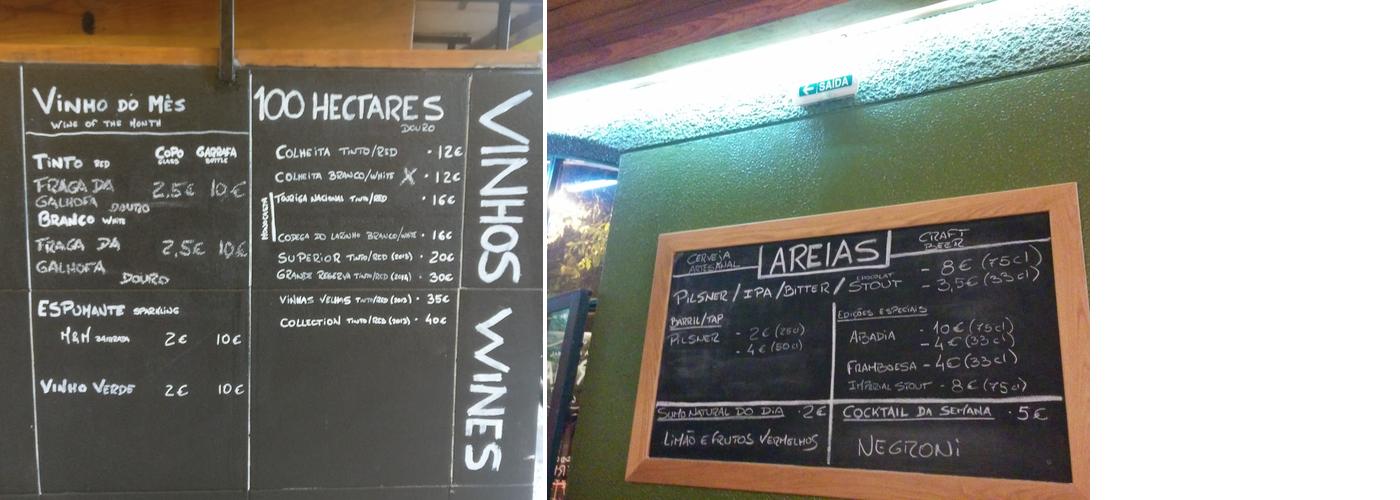 VINHO DO MÊS
WINE OF THE MONTH
TINTO RED COPO GLASS GARRAFA BOTTLE
FRAGA DA GALHOFA DOURO 2,5€ 10€
BRANCO WHITE
FRAGA DA GALHOFA DOURO 2,5€ 10€
ESPUMANTE SPARKLING
M&M BAIRRADA 2€ 10€
VINHO VERDE 2€ 10€
100 HECTARES
DOURO
COLHEITA TINTO/RED · 12€
COLHEITA BRANCO/WHITE X · 12€
MONOCASTA
TOURIGA NACIONAL TINTO/RED · 16€
CODEGA DO LARINHO BRANCO/WHITE · 16€
SUPERIOR TINTO/RED (2013) · 20€
GRANDE RESERVA TINTO/RED · 30€
VINHAS VELHAS TINTO/RED (2013) · 35€
COLLECTION TINTO/RED (2013) · 40€
VINHOS WINES
SAÍDA
CERVEJA ARTESANAL AREIAS CRAFT BEER
PILSNER / IPA / BITTER / CHOCOLAT STOUT - 8€ (75cl)
- 3,5€ (33cl)
BARRIL/TAP
PILSNER - 2€ (25cl)
- 4€ (50cl)
EDIÇÕES ESPECIAIS
ABADIA - 10€ (75cl)
- 4€ (33cl)
FRAMBOESA - 4€ (33cl)
IMPERIAL STOUT - 8€ (75cl)
SUMO NATURAL DO DIA · 2€
LIMÃO E FRUTOS VERMELHOS
COCKTAIL DA SEMANA · 5€
NEGRONI